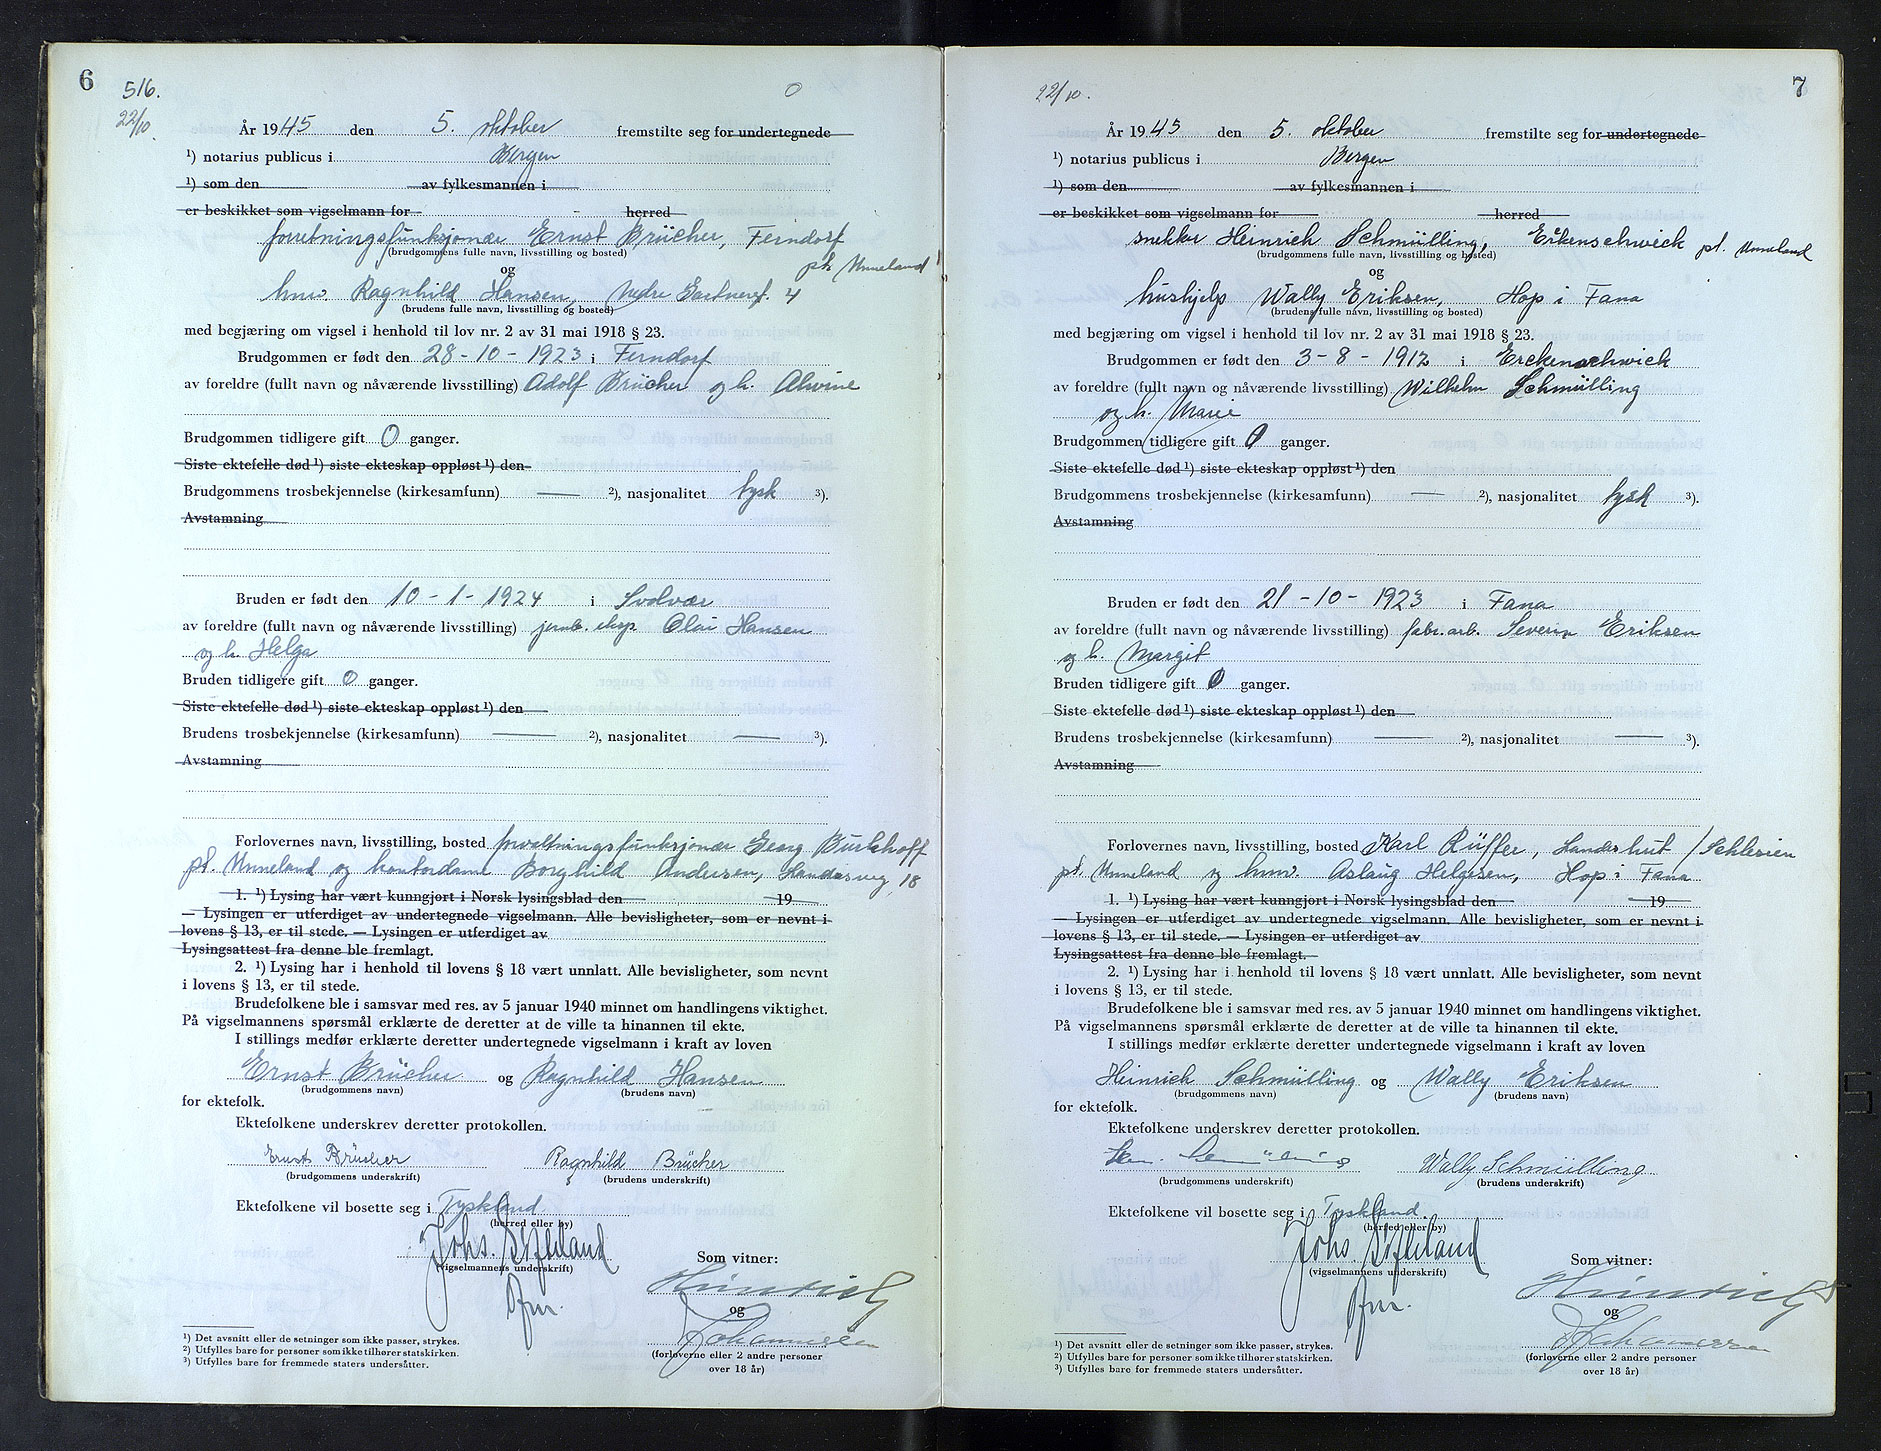 6
516.
22/10.
0
År 1945 den 5. oktober fremstilte seg for undertegnede
¹) notarius publicus i Bergen
¹) som den av fylkesmannen i
er beskikket som vigselmann for herred
forretningsfunksjonær Ernst Brücher, Ferndorf
(brudgommens fulle navn, livsstilling og bosted)
pt. Unneland
og
hmv. Ragnhild Hansen, Nedre 4
(brudens fulle navn, livsstilling og bosted)
med begjæring om vigsel i henhold til lov nr. 2 av 31 mai 1918 § 23.
Brudgommen er født den 28-10-1923 i Ferndorf
av foreldre (fullt navn og nåværende livsstilling) Adolf Brücher og h. Alwine
Brudgommen tidligere gift 0 ganger.
Siste ektefelle død ¹) siste ekteskap oppløst ¹) den
Brudgommens trosbekjennelse (kirkesamfunn) — ²), nasjonalitet tysk ³).
Avstamning
Bruden er født den 10-1-1924 i Svolvær
av foreldre (fullt navn og nåværende livsstilling) jernb. eksp. Olai Hansen
og h. Helga
Bruden tidligere gift 0 ganger.
Siste ektefelle død ¹) siste ekteskap oppløst ¹) den
Brudens trosbekjennelse (kirkesamfunn) — ²), nasjonalitet — ³).
Avstamning
Forlovernes navn, livsstilling, bosted forvaltningsfunksjonær Georg Burkhoff
pt. Unneland og kontordame Borghild Andersen, Sandviksveg 18
1. ¹) Lysing har vært kunngjort i Norsk lysingsblad den 19
— Lysingen er utferdiget av undertegnede vigselmann. Alle bevisligheter, som er nevnt i
lovens § 13, er til stede. — Lysingen er utferdiget av
Lysingsattest fra denne ble fremlagt.
2. ¹) Lysing har i henhold til lovens § 18 vært unnlatt. Alle bevisligheter, som nevnt
i lovens § 13, er til stede.
Brudefolkene ble i samsvar med res. av 5 januar 1940 minnet om handlingens viktighet.
På vigselmannens spørsmål erklærte de deretter at de ville ta hinannen til ekte.
I stillings medfør erklærte deretter undertegnede vigselmann i kraft av loven
Ernst Brücher og Ragnhild Hansen
(brudgommens navn) (brudens navn)
for ektefolk.
Ektefolkene underskrev deretter protokollen.
Ernst Brücher Ragnhild Brücher
(brudgommens underskrift) (brudens underskrift)
Ektefolkene vil bosette seg i Tyskland
(herred eller by)
Johs.
(vigselmannens underskrift)
Som vitner:
og
Johannesen
(forloverne eller 2 andre personer
over 18 år)
¹) Det avsnitt eller de setninger som ikke passer, strykes.
²) Utfylles bare for personer som ikke tilhører statskirken.
³) Utfylles bare for fremmede staters undersåtter.
7
22/10.
År 1945 den 5. oktober fremstilte seg for undertegnede
¹) notarius publicus i Bergen
¹) som den av fylkesmannen i
er beskikket som vigselmann for herred
snekker Heinrich Schmülling, Erkenschwick pt. Unneland
(brudgommens fulle navn, livsstilling og bosted)
og
hushjelp Wally Eriksen, Hop i Fana
(brudens fulle navn, livsstilling og bosted)
med begjæring om vigsel i henhold til lov nr. 2 av 31 mai 1918 § 23.
Brudgommen er født den 3-8-1912 i Erckenschwick
av foreldre (fullt navn og nåværende livsstilling) Wilhelm Schmülling
og h. Marie
Brudgommen tidligere gift 0 ganger.
Siste ektefelle død ¹) siste ekteskap oppløst ¹) den
Brudgommens trosbekjennelse (kirkesamfunn) — ²), nasjonalitet tysk ³).
Avstamning
Bruden er født den 21-10-1923 i Fana
av foreldre (fullt navn og nåværende livsstilling) fabr.arb. Severin Eriksen
og h. Margit
Bruden tidligere gift 0 ganger.
Siste ektefelle død ¹) siste ekteskap oppløst ¹) den
Brudens trosbekjennelse (kirkesamfunn) — ²), nasjonalitet — ³).
Avstamning
Forlovernes navn, livsstilling, bosted Karl Rüffer, Landeshut / Schlesien
pt. Unneland og hmv. Aslaug Helgesen, Hop i Fana
1. ¹) Lysing har vært kunngjort i Norsk lysingsblad den 19
— Lysingen er utferdiget av undertegnede vigselmann. Alle bevisligheter, som er nevnt i
lovens § 13, er til stede. — Lysingen er utferdiget av
Lysingsattest fra denne ble fremlagt.
2. ¹) Lysing har i henhold til lovens § 18 vært unnlatt. Alle bevisligheter, som nevnt
i lovens § 13, er til stede.
Brudefolkene ble i samsvar med res. av 5 januar 1940 minnet om handlingens viktighet.
På vigselmannens spørsmål erklærte de deretter at de ville ta hinannen til ekte.
I stillings medfør erklærte deretter undertegnede vigselmann i kraft av loven
Heinrich Schmülling og Wally Eriksen
(brudgommens navn) (brudens navn)
for ektefolk.
Ektefolkene underskrev deretter protokollen.
Wally Schmülling
(brudgommens underskrift) (brudens underskrift)
Ektefolkene vil bosette seg i Tyskland
(herred eller by)
Johs.
(vigselmannens underskrift)
Som vitner:
og
Johannesen
(forloverne eller 2 andre personer
over 18 år)
¹) Det avsnitt eller de setninger som ikke passer, strykes.
²) Utfylles bare for personer som ikke tilhører statskirken.
³) Utfylles bare for fremmede staters undersåtter.